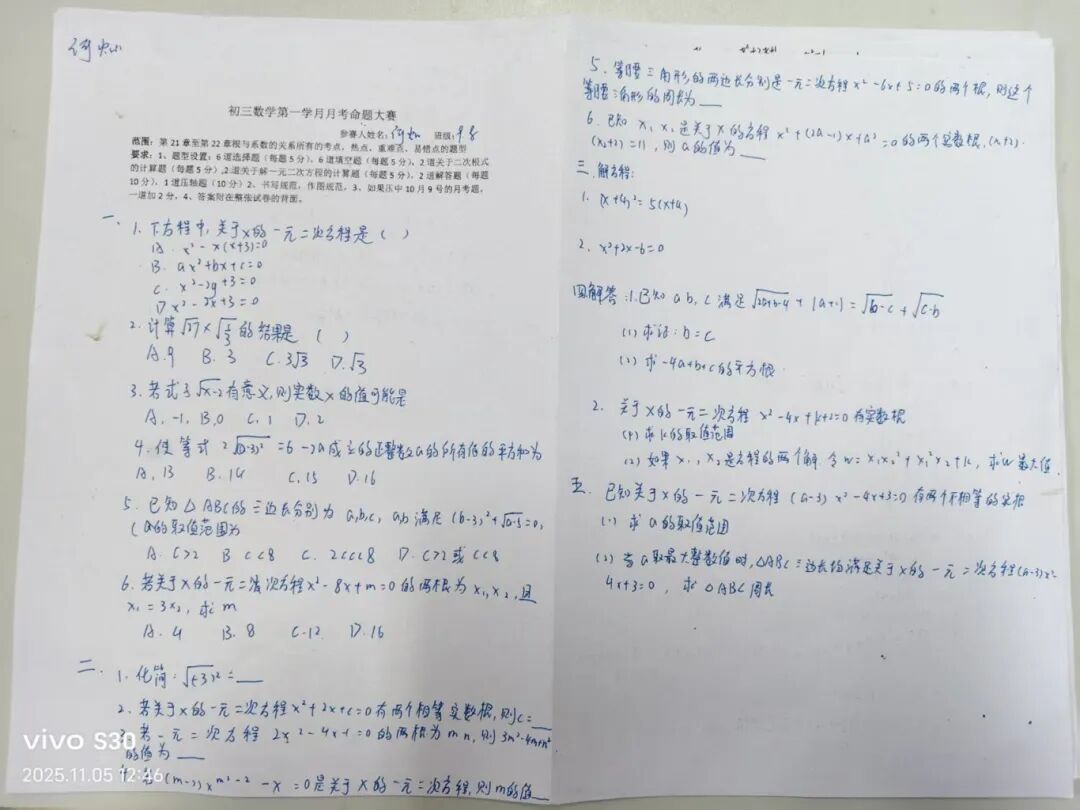 初三数学第一学月月考命题大赛
参赛人姓名: 班级:
范围：第21章至第22章根与系数的关系所有的考点，热点，重难点，易错点的题型
要求：1、题型设置：6道选择题（每题5分），6道填空题（每题5分），2道关于二次根式
的计算题（每题5分），2道关于解一元二次方程的计算题（每题5分），2道解答题（每题
10分），1道压轴题（10分）2、书写规范，作图规范，3、如果压中10月9号的月考题，
一道加2分，4、答案附在整张试卷的背面。
一、
1. 下方程中，关于x的一元二次方程是（ ）
A. x²-x(x+3)=0
B. ax²+bx+c=0
C. x²-2y+3=0
D x²-2x+3=0
2. 计算√27×√(1/3)的结果是（ ）
A.9 B.3 C.3√3 D.√3
3. 若式子√x-2有意义，则实数x的值可能是
A.-1, B.0 C.1 D.2
4. 使等式2√(a-3)²=6-2a成立的正整数a的所有值的平方和为
A.13 B.14 C.15 D.16
5. 已知△ABC的三边长分别为a,b,c, a,b满足(b-3)²+√a-5=0,
C的取值范围为
A. C>2 B C<8 C. 2<C<8 D. C>2或C<8
6. 若关于x的一元二次方程x²-8x+m=0的两根为x₁,x₂,且
x₁=3x₂, 求m
A. 4 B. 8 C.12 D.16
二.
1. 化简:√(-3)²=__
2. 若关于x的一元二次方程x²+2x+c=0有两个相等实数根，则c=__
3. 若一元二次方程2x²-4x+1=0的两根为m n,则3m²-4m+n²
的值为__
(m-2)x^m²-2 -x=0是关于x的一元二次方程,则m的值__
5. 等腰三角形的两边长分别是一元二次方程x²-6x+5=0的两个根，则这个
等腰三角形的周长为__
6. 已知x₁ x₂是关于x的方程x²+(2a-1)x+a²=0的两个实数根, (x₁+2)·
(x₂+2)=11, 则a的值为__
三. 解方程:
1. (x+4)²=5(x+4)
2. x²+2x-6=0
四解答:1.已知a b, c满足√2a+b-4+|a+1|=√b-c+√c-b
(1) 求证:b=c
(2) 求-4a+b+c的平方根.
2. 关于x的一元二次方程x²-4x+k+2=0有实数根
(1) 求k的取值范围
(2) 如果x₁, x₂是方程的两个解,令w=x₁x₂²+x₁²x₂+k, 求w最大值
五. 已知关于x的一元二次方程(a-3)x²-4x+3=0有两个不相等的实根
(1) 求a的取值范围
(2) 当a取最大整数值时,△ABC三边长均满足关于x的一元二次方程(a-3)x²-
4x+3=0, 求△ABC周长
vivo S30
2025.11.05 12:46